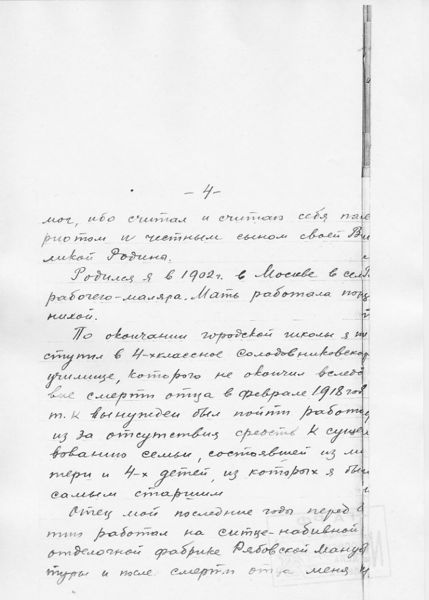 -4-
мог, ибо считал и считаю себя пат
риотом и честным сыном своей Ве
ликой Родины.
Родился я в 1902г. в Москве в сем
рабочего-маляра. Мать работала порт
нихой.
По окончании городской школы я по
ступил в 4-хклассное Солодовниковское
училище, которого не окончил вслед
вие смерти отца в феврале 1918 год
т.к вынужден был пойти работа
из за отсутствия средств к суще
вованию семьи, состоявшей из ма
тери и 4-х детей, из которых я был
самым старшим
Отец мой последние годы перед с
тью работал на ситце-набивной
отделочной фабрике Рябовской Ману
туры и после смерти отца меня